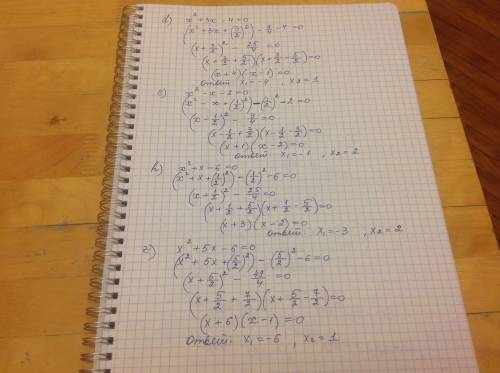 d) x² + 3x - 4 = 0
(x² + 3x + (3/2)²) - 9/4 - 4 = 0
(x + 3/2)² - 25/4 = 0
(x + 3/2 + 5/2)(x + 3/2 - 5/2) = 0
(x + 4)(x - 1) = 0
Ответ x₁ = -4, x₂ = 1
e) x² - x - 2 = 0
(x² - x + (1/2)²) - (1/2)² - 2 = 0
(x - 1/2)² - 9/4 = 0
(x - 1/2 + 3/2)(x - 1/2 - 3/2) = 0
(x + 1)(x - 2) = 0
Ответ: x₁ = -1, x₂ = 2
h) x² + x - 6 = 0
(x² + x + (1/2)²) - (1/2)² - 6 = 0
(x + 1/2)² - 25/4 = 0
(x + 1/2 + 5/2)(x + 1/2 - 5/2) = 0
(x + 3)(x - 2) = 0
Ответ x₁ = -3, x₂ = 2
г) x² + 5x - 6 = 0
(x² + 5x + (5/2)²) - (5/2)² - 6 = 0
(x + 5/2)² - 49/4 = 0
(x + 5/2 + 7/2)(x + 5/2 - 7/2) = 0
(x + 6)(x - 1) = 0
Ответ: x₁ = -6, x₂ = 1